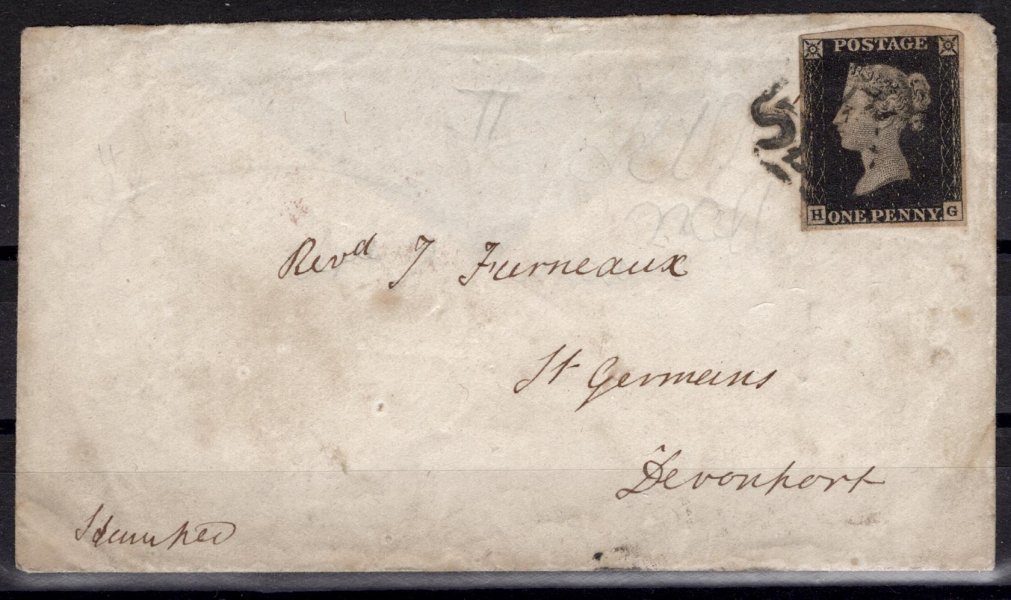 POSTAGE
H ONE PENNY. G
Revd J Furneaux
St Germans
Devonport
Stamped